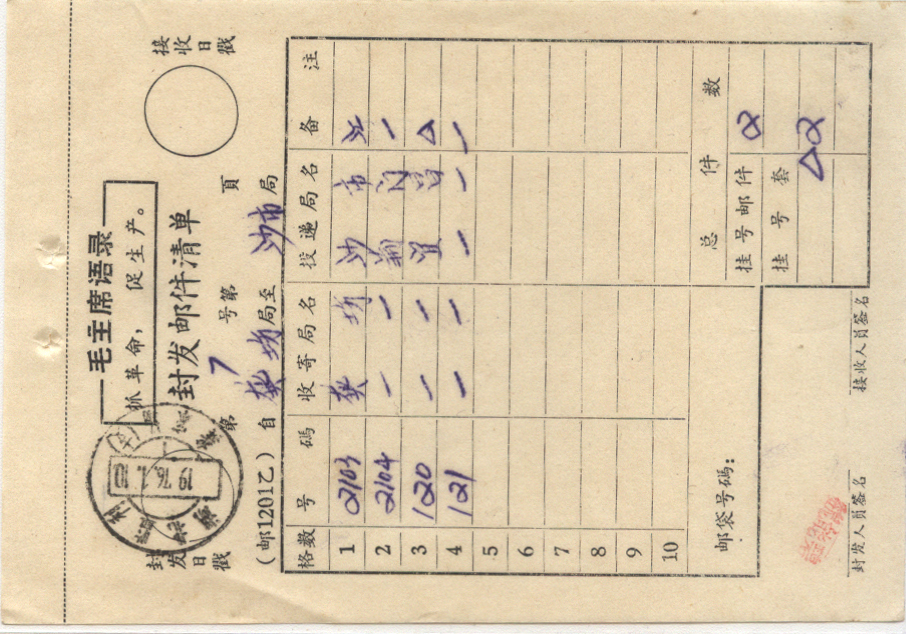 毛主席语录
抓革命，促生产。
封发邮件清单
接收日戳
封发日戳
第 7 号第 頁
(邮1201乙) 自 局至 沙市 局
格数 号码 收寄局名 投递局名 备注
1 2103 沙市
2 2104 一 一
3 120 一 一
4 121 一 一 一 一
5
6
7
8
9
10
总件数
挂号邮件
挂号套
邮袋号码：
封发人员签名
接收人员签名